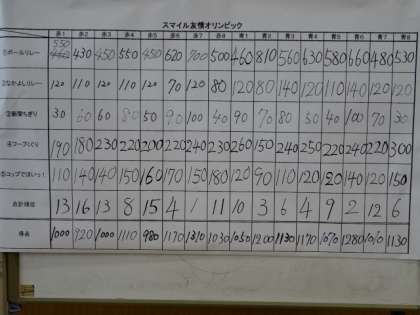 スマイル友情オリンピック
赤1 赤2 赤3 赤4 赤5 赤6 赤7 赤8 青1 青2 青3 青4 青5 青6 青7 青8
550
①ボールリレー 430 450 550 450 620 700 500 460 810 560 630 580 660 480 530
②なかよしリレー 120 110 120 110 120 70 120 80 120 80 140 120 110 140 120 120
③新聞ちぎり 30 60 60 80 50 90 100 40 90 70 80 30 40 100 70 30
④フープくぐり 190 180 230 220 200 220 240 230 260 150 240 250 220 240 220 300
⑤コップでほいっ! 110 140 140 150 160 170 150 180 120 90 110 120 120 140 120 150
合計順位 13 16 13 8 15 4 1 11 10 3 6 4 9 2 12 6
得点 1000 920 1000 1110 980 1170 1310 1030 1050 1200 1130 1170 1070 1280 1010 1130